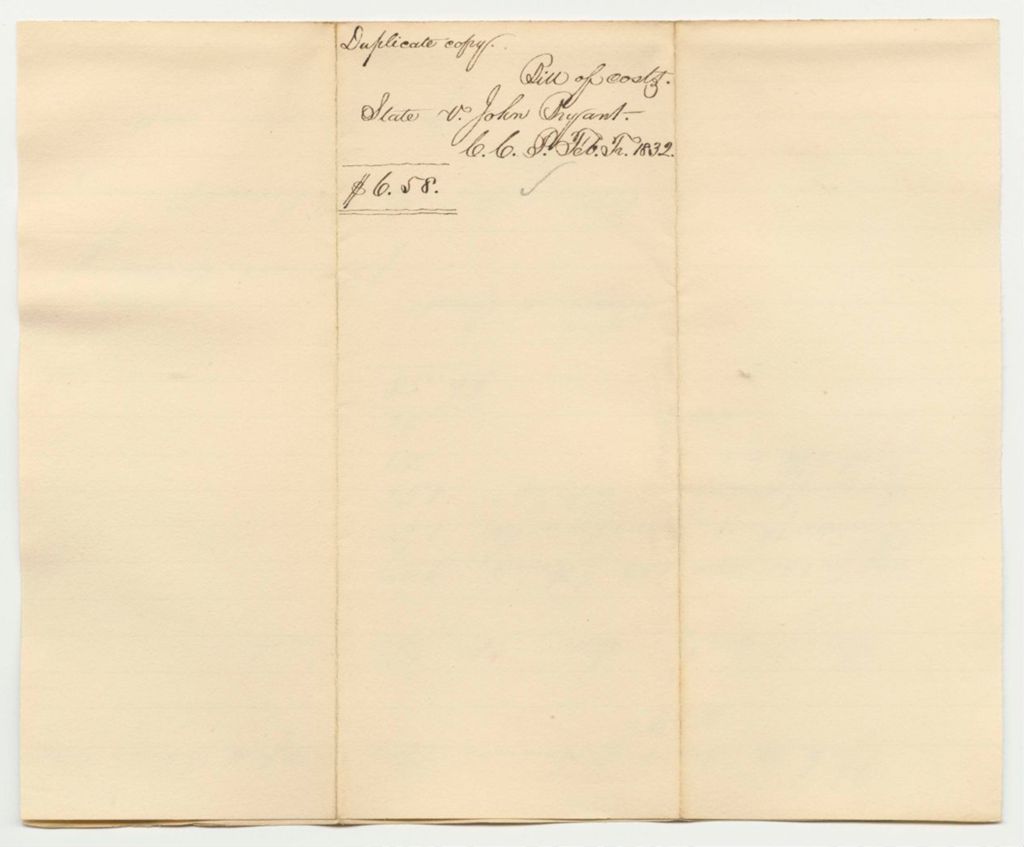 Duplicate copy.
Bill of costs.
State v. John Bryant.
C. C. P. Feb. Tr. 1832.
$6.58.